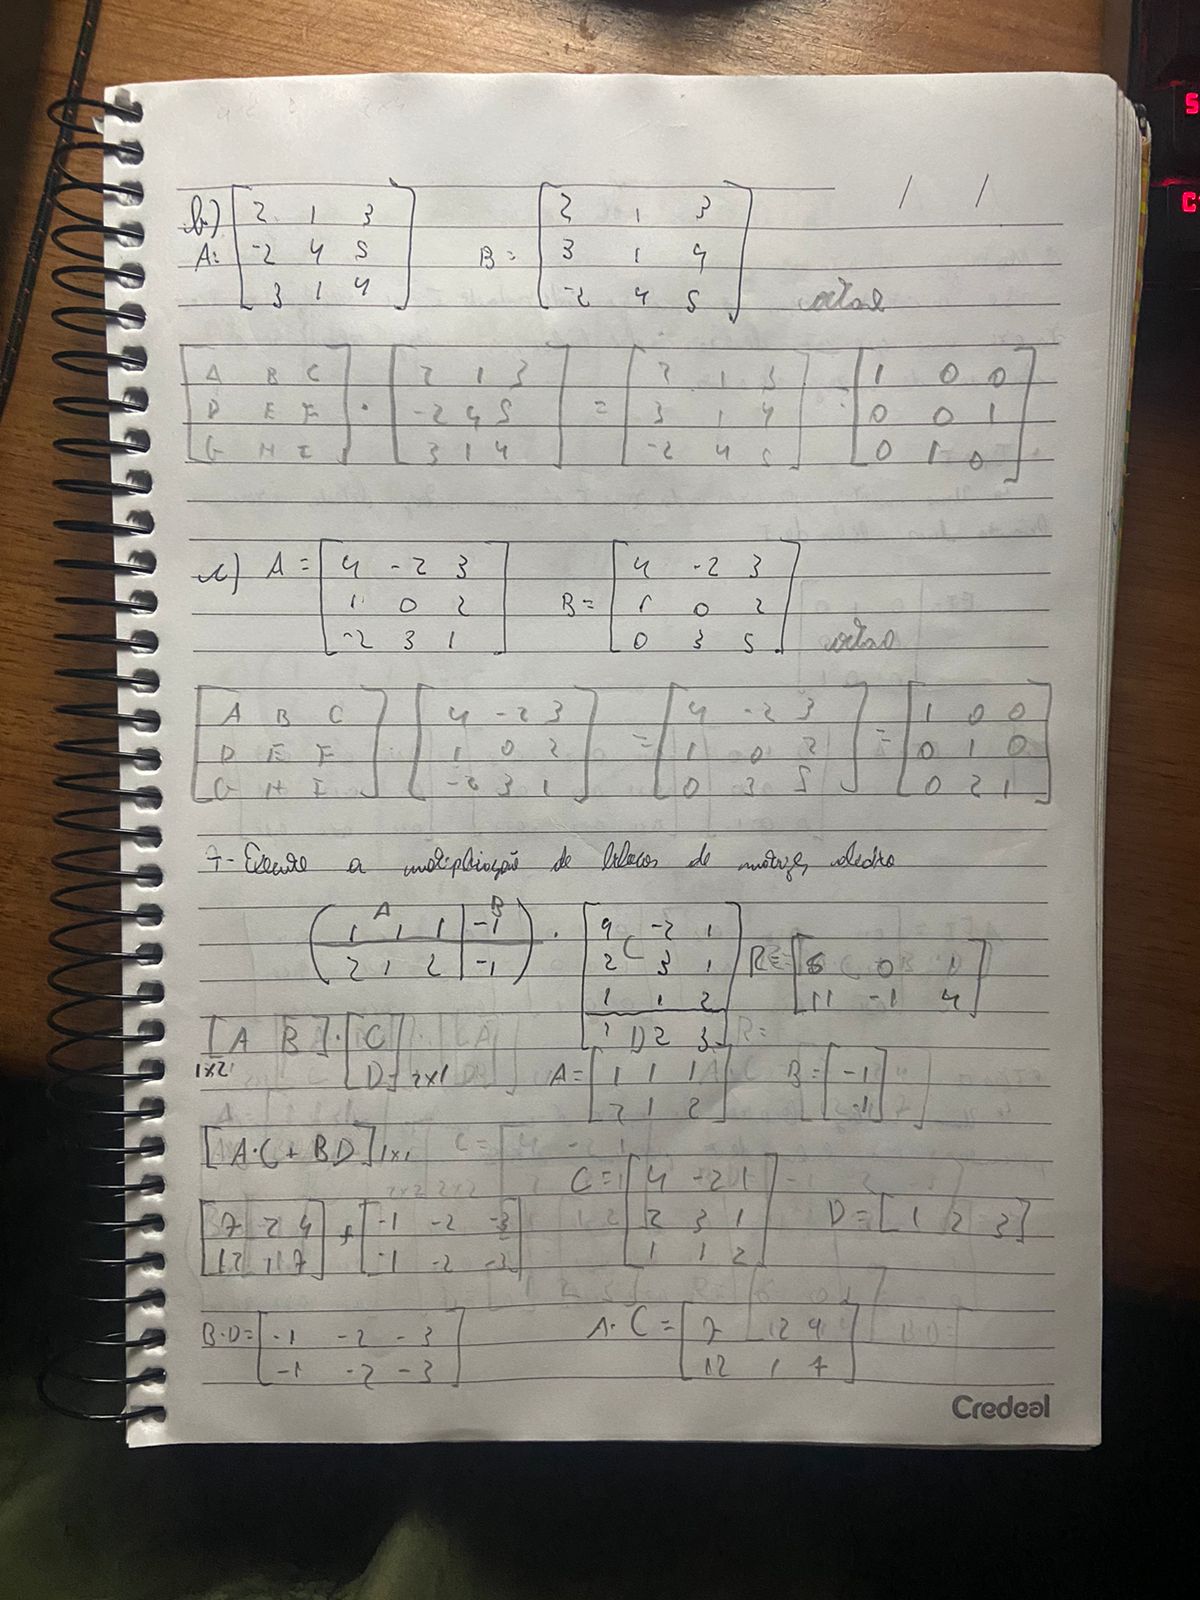 b)
A= [2 1 3
-2 4 5
3 1 4]
B= [2 1 3
3 1 4
-2 4 5]
[A B C
D E F
G H I] · [2 1 3
-2 4 5
3 1 4] = [2 1 3
3 1 4
-2 4 5] = [1 0 0
0 0 1
0 1 0]
c) A = [4 -2 3
1 0 2
-2 3 1]
B= [4 -2 3
1 0 2
0 3 5]
[A B C
D E F
G H I] [4 -2 3
1 0 2
-2 3 1] = [4 -2 3
1 0 2
0 3 5] = [1 0 0
0 1 0
0 2 1]
7- Execute a multiplicação de blocos de matriz
A B
(1 1 1 | -1
2 1 2 | -1) · [4 -2 1
2 C 3 1
1 1 2
1 D 2 3]
R= [6 0 1
11 -1 4]
[A B] 1x2 · [C
D] 2x1
A= [1 1 1
2 1 2]
B= [-1
-1]
[A·C + BD] 1x1
C= [4 -2 1
2 3 1
1 1 2]
D= [1 2 3]
[7 2 4
12 1 7] + [-1 -2 -3
-1 -2 -3]
B·D= [-1 -2 -3
-1 -2 -3]
A·C= [7 2 4
12 1 7]
Credeal
S